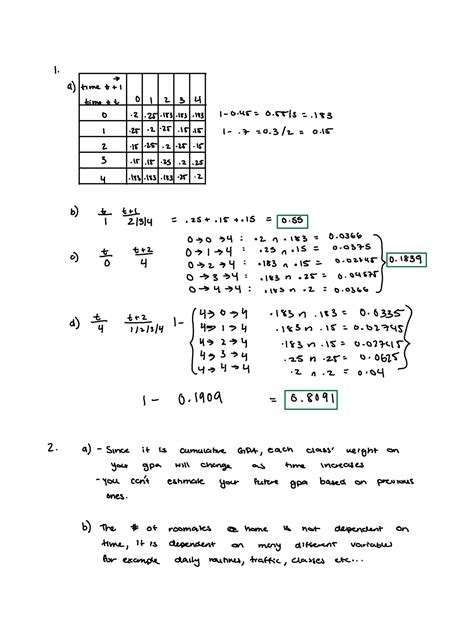 1.
a) time t+1 →
time t 0 1 2 3 4
0 .2 .25 .183 .183 .183
1 .25 .2 .25 .15 .15
2 .15 .25 .2 .25 .15
3 .15 .15 .25 .2 .25
4 .183 .183 .183 .25 .2
1-0.45 = 0.55/3 = .183
1- .7 = 0.3/2 = 0.15
b) t t+1
1 2/3/4 = .25 + .15 + .15 = 0.55
c) t t+2
0 4
0→0→4: .2 ∩ .183 = 0.0366
0→1→4: .25 ∩ .15 = 0.0375
0→2→4: .183 ∩ .15 = 0.02745
0→3→4: .183 ∩ .25 = 0.04575
0→4→4: .183 ∩ .2 = 0.0366
0.1839
d) t t+2
4 1/2/3/4 1-
4→0→4 .183 ∩ .183 = 0.0335
4→1→4 .183 ∩ .15 = 0.02745
4→2→4 .183 ∩ .15 = 0.02745
4→3→4 .25 ∩ .25 = 0.0625
4→4→4 .2 ∩ .2 = 0.04
1- 0.1909 = 0.8091
2. a) - Since it is cumulative GPA, each class' weight on
your gpa will change as time increases
- you can't estimate your future gpa based on previous
ones.
b) The # of roomates @ home is not dependent on
time, it is dependent on many different variables
for example daily routines, traffic, classes etc...